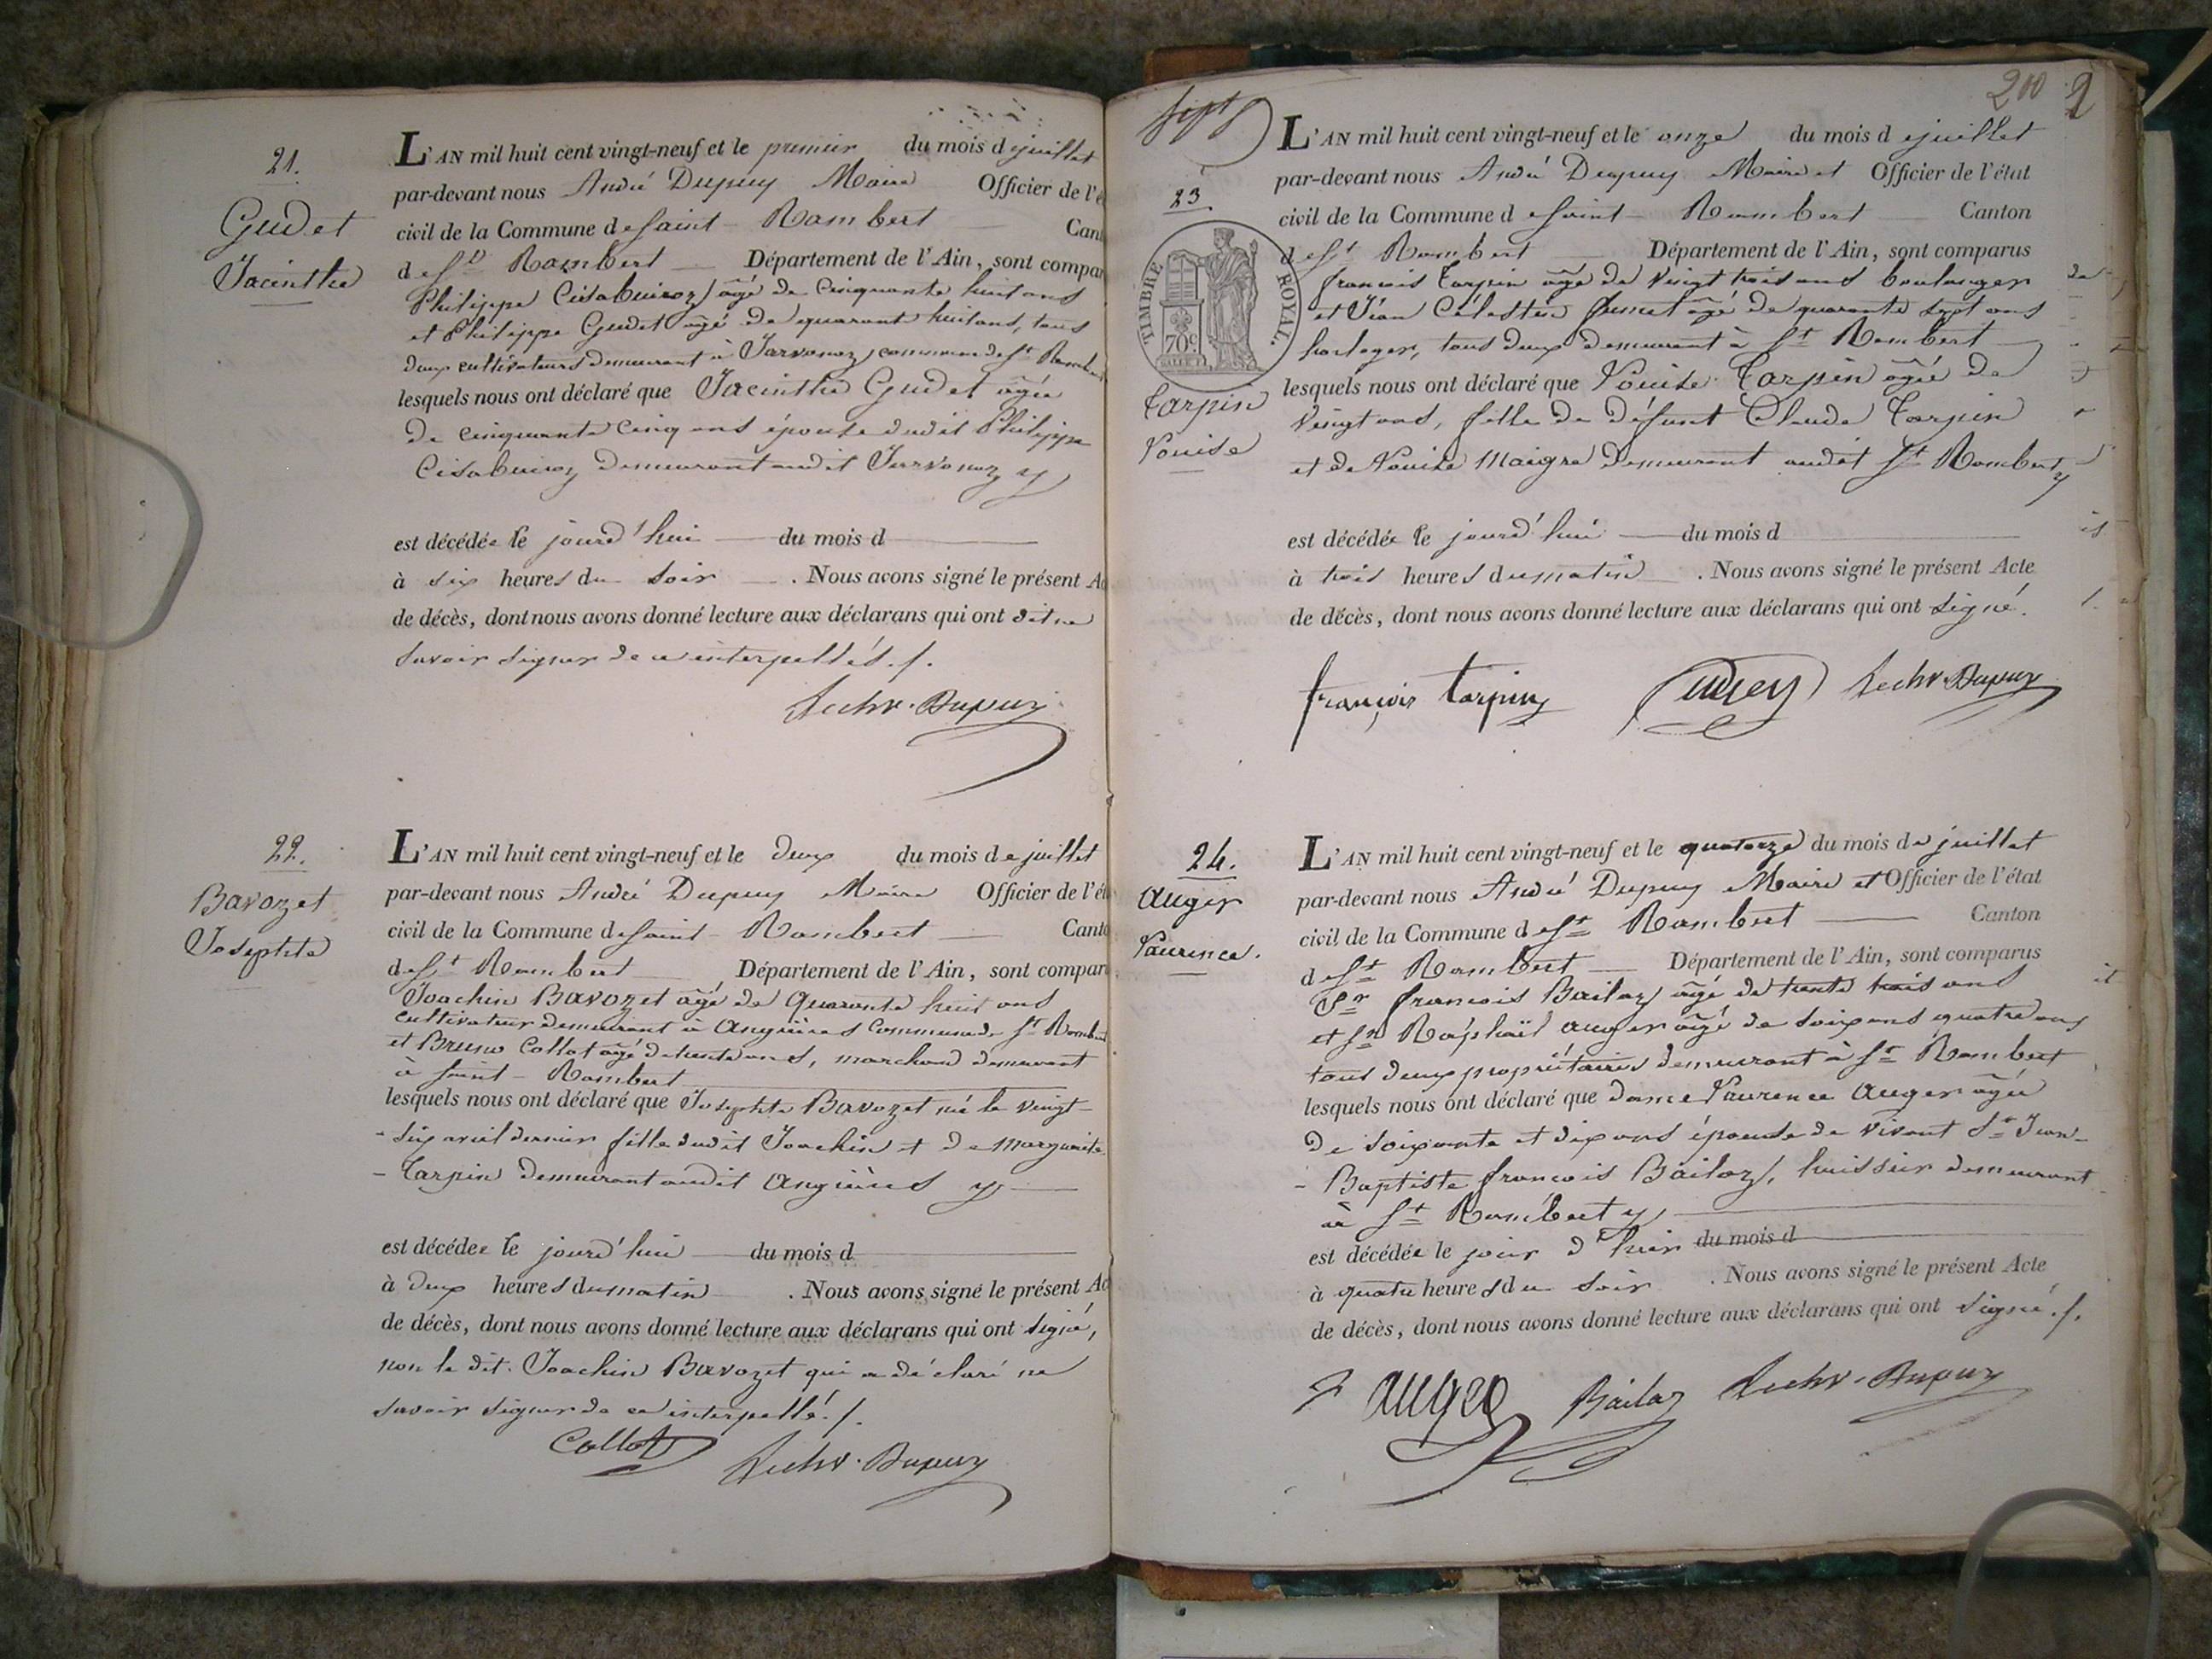 21.
Gudet
Jacinthe
L'AN mil huit cent vingt-neuf et le premier du mois de juillet
par-devant nous André Dupuy Maire Officier de l'é
civil de la Commune de Saint-Rambert Cant
de St Rambert Département de l'Ain, sont compar
Philippe âgé de Cinquante huit ans
et Philippe Gudet âgé de quarante huit ans, tous
deux cultivateurs demeurant à Javornoz commune de St Ramber
lesquels nous ont déclaré que Jacinthe Gudet âgée
de cinquante Cinq ans épouse dudit Philippe
demeurant audit Javornoz
est décédée le jourd'hui du mois d
à six heures du soir . Nous avons signé le présent Ac
de décès, dont nous avons donné lecture aux déclarans qui ont dit ne
savoir signer de ce interpellés ./.
Dupuy
22.
Bavozet
Josephte
L'AN mil huit cent vingt-neuf et le deux du mois de juillet
par-devant nous André Dupuy Maire Officier de l'ét
civil de la Commune de Saint-Rambert Canto
de St Rambert Département de l'Ain, sont compar
Joachin Bavozet âgé de Quarante huit ans
cultivateur demeurant à Angrières Commune de St Rambert
et Bruno Collot âgé de trente ans, marchand demeurant
à Saint-Rambert
lesquels nous ont déclaré que Josephte Bavozet née le vingt-
-six avril dernier fille dudit Joachin et de Marguerite
-Tarpin demeurant audit Angrières
est décédée le jourd'hui du mois d
à deux heures du matin . Nous avons signé le présent Ac
de décès, dont nous avons donné lecture aux déclarans qui ont signé,
non le dit Joachin Bavozet qui a déclaré ne
savoir signer de ce interpellé ./.
Collot Dupuy
200
sept
23
TIMBRE ROYAL.
70c
Tarpin
Louise
L'AN mil huit cent vingt-neuf et le onze du mois de juillet
par-devant nous André Dupuy Maire et Officier de l'état
civil de la Commune de Saint-Rambert Canton
de St Rambert Département de l'Ain, sont comparus
françois Tarpin âgé de vingt trois ans boulanger
et Jean Célestin âgé de quarante sept ans
horloger, tous deux demeurant à St Rambert
lesquels nous ont déclaré que Louise Tarpin âgée de
vingt ans, fille de défunt Claude Tarpin
et de Louise Maigre demeurant audit St Rambert
est décédée le jourd'hui du mois d
à trois heures du matin . Nous avons signé le présent Acte
de décès, dont nous avons donné lecture aux déclarans qui ont signé.
françois tarpin Dupuy
24.
Auger
Laurence.
L'AN mil huit cent vingt-neuf et le quatorze du mois de juillet
par-devant nous André Dupuy Maire et Officier de l'état
civil de la Commune de St Rambert Canton
de St Rambert Département de l'Ain, sont comparus
Sr françois Bailaz âgé de trente trois ans
et Sr Raphaël Auger âgé de soixans quatre ans
tous deux propriétaires demeurant à St Rambert
lesquels nous ont déclaré que dame Laurence Auger âgée
de soixante et dix ans épouse de vivant Sr Jean-
-Baptiste françois Bailaz, huissier demeurant
à St Rambert
est décédée le jour d'hier du mois d
à quatre heures du soir . Nous avons signé le présent Acte
de décès, dont nous avons donné lecture aux déclarans qui ont signé ./.
auger Bailaz Dupuy